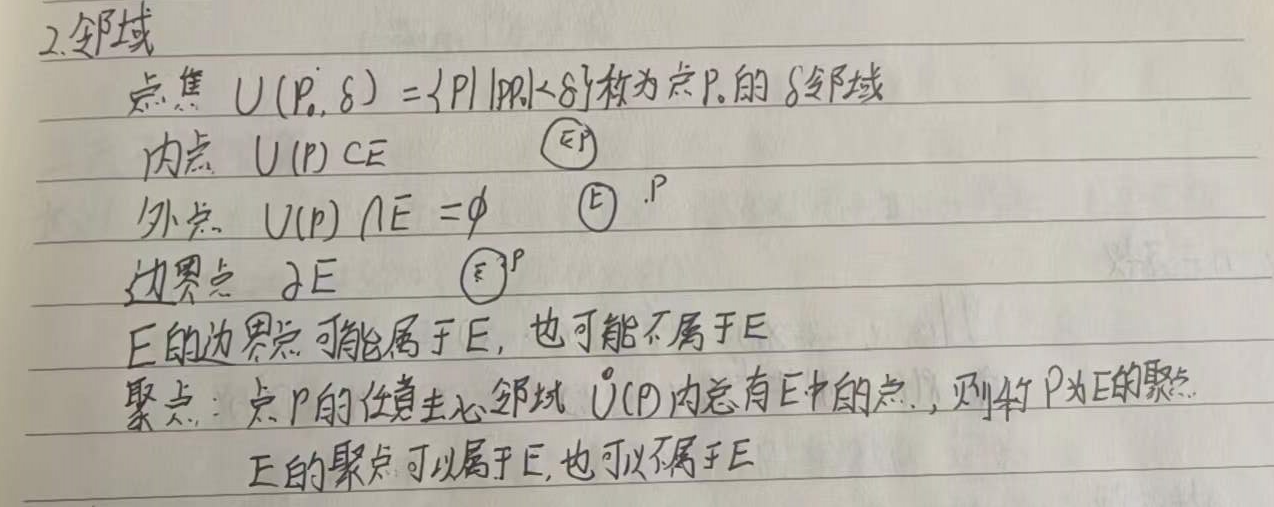 2.邻域
点集 U(P₀, δ) = {P| |PP₀|<δ} 称为点P₀的 δ邻域
内点 U(P)⊂E E P
外点 U(P)∩E=∅ E .P
边界点 ∂E E P
E的边界点可能属于E, 也可能不属于E
聚点: 点P的任意去心邻域 Ů(P)内总有E中的点, 则称P为E的聚点
E的聚点可以属于E, 也可以不属于E